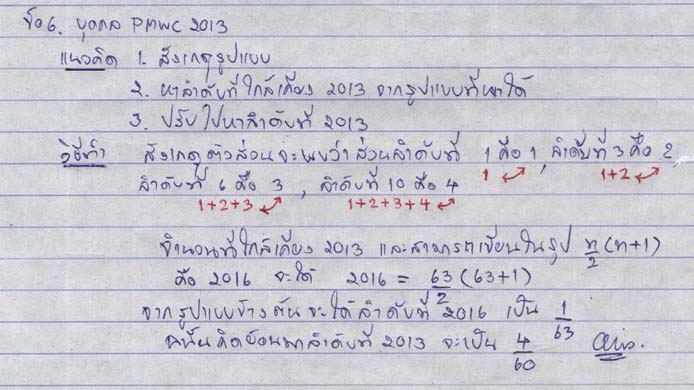 ข้อ 6. บุคคล PMWC 2013
แนวคิด 1. สังเกตรูปแบบ
2. หาลำดับที่ใกล้เคียง 2013 จากรูปแบบที่หาได้
3. ปรับไปหาลำดับที่ 2013
วิธีทำ สังเกตตัวส่วนจะพบว่า ส่วนลำดับที่ 1 คือ 1, ลำดับที่ 3 คือ 2,
1 1+2
ลำดับที่ 6 คือ 3, ลำดับที่ 10 คือ 4
1+2+3 1+2+3+4
จำนวนที่ใกล้เคียง 2013 และสามารถเขียนในรูป n/2 (n+1)
คือ 2016 จะได้ 2016 = 63/2 (63+1)
จากรูปแบบข้างต้นจะได้ลำดับที่ 2016 เป็น 1/63
ฉะนั้นคิดย้อนมาลำดับที่ 2013 จะเป็น 4/60 Ans.